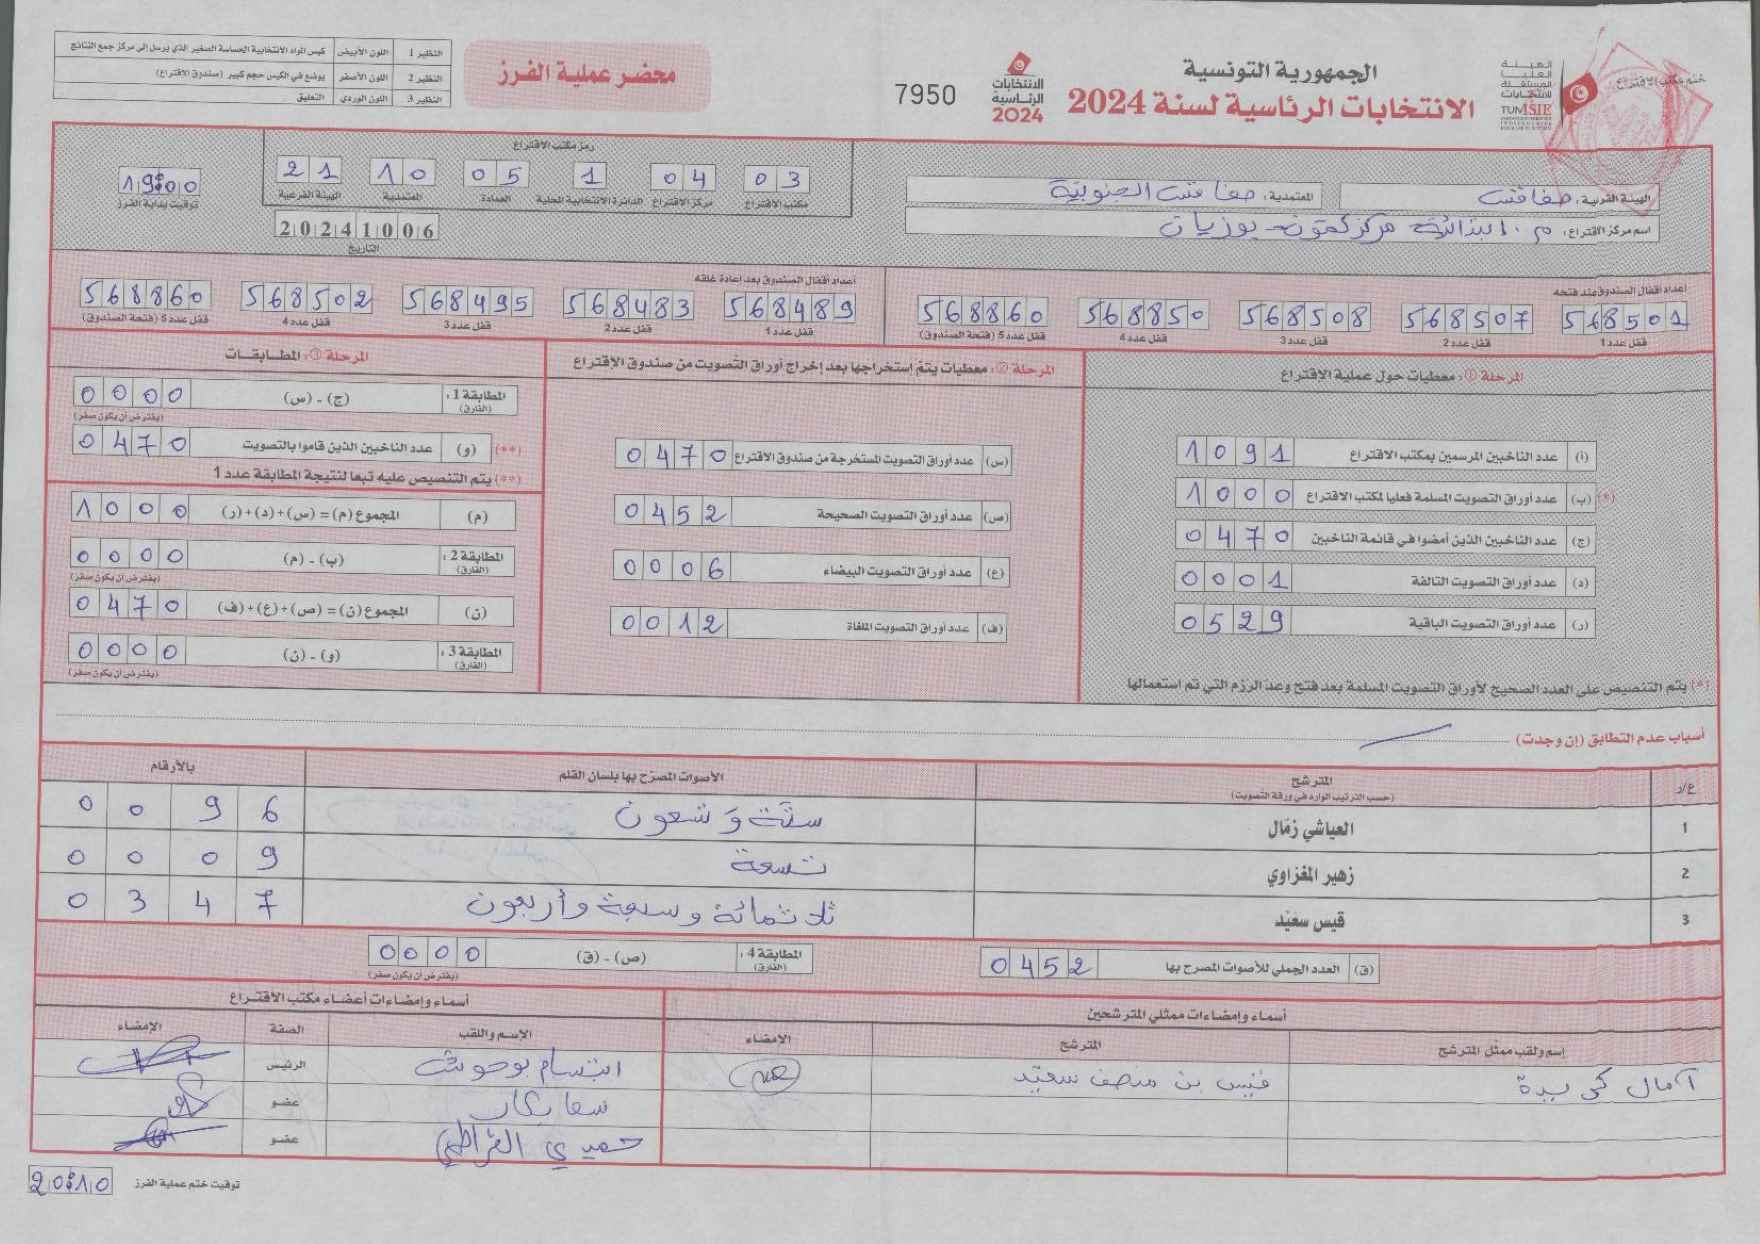 الجمهورية التونسية
الانتخابات الرئاسية لسنة 2024
7950
محضر عملية الفرز
الهيئة
العليا
المستقلة
للانتخابات
TUNISIE
الانتخابات
الرئاسية
2024
ختم مكتب الاقتراع
النظير 1 اللون الأبيض كيس المواد الانتخابية الحساسة الصغير الذي يرسل إلى مركز جمع النتائج
النظير 2 اللون الأصفر يوضع في الكيس حجم كبير (صندوق الاقتراع)
النظير 3 اللون الوردي التعليق
الهيئة الفرعية: صفاقس المعتمدية: صفاقس الجنوبية
اسم مركز الاقتراع: م. ابتدائية مركز كمون بوزيان
رمز مكتب الاقتراع
03 04 1 05 10 21
مكتب الاقتراع مركز الاقتراع الدائرة الانتخابية المحلية العمادة المعتمدية الهيئة الفرعية
20241006
التاريخ
19:00
توقيت بداية الفرز
أعداد أقفال الصندوق عند فتحه
568501 568507 568508 568850 568860
قفل عدد 1 قفل عدد 2 قفل عدد 3 قفل عدد 4 قفل عدد 5 (فتحة الصندوق)
أعداد أقفال الصندوق بعد إعادة غلقه
568489 568483 568495 568502 568860
قفل عدد 1 قفل عدد 2 قفل عدد 3 قفل عدد 4 قفل عدد 5 (فتحة الصندوق)
المرحلة ①: معطيات حول عملية الاقتراع
(أ) عدد الناخبين المرسمين بمكتب الاقتراع 1091
(*) (ب) عدد أوراق التصويت المسلمة فعليا لمكتب الاقتراع 1000
(ج) عدد الناخبين الذين أمضوا في قائمة الناخبين 0470
(د) عدد أوراق التصويت التالفة 0001
(ر) عدد أوراق التصويت الباقية 0529
(*) يتم التنصيص على العدد الصحيح لأوراق التصويت المسلمة بعد فتح وعد الرزم التي تم استعمالها
المرحلة ②: معطيات يتم إستخراجها بعد إخراج أوراق التصويت من صندوق الاقتراع
(س) عدد أوراق التصويت المستخرجة من صندوق الاقتراع 0470
(ص) عدد أوراق التصويت الصحيحة 0452
(ع) عدد أوراق التصويت البيضاء 0006
(ف) عدد أوراق التصويت الملغاة 0012
المرحلة ③: المطابقات
المطابقة 1: (الفارق) (ج) - (س) 0000
(يفترض أن يكون صفر)
(**) (و) عدد الناخبين الذين قاموا بالتصويت 0470
(**) يتم التنصيص عليه تبعا لنتيجة المطابقة عدد 1
(م) المجموع (م) = (س)+(د)+(ر) 1000
المطابقة 2: (الفارق) (ب) - (م) 0000
(يفترض أن يكون صفر)
(ن) المجموع (ن) = (ص)+(ع)+(ف) 0470
المطابقة 3: (الفارق) (و) - (ن) 0000
(يفترض أن يكون صفر)
أسباب عدم التطابق (إن وجدت)
ع/ر المترشح الأصوات المصرح بها بلسان القلم بالأرقام
(حسب الترتيب الوارد في ورقة التصويت)
1 العياشي زمّال ستة وتسعون 0096
2 زهير المغزاوي تسعة 0009
3 قيس سعيّد ثلاثمائة وسبعة وأربعون 0347
(ق) العدد الجملي للأصوات المصرح بها 0452
المطابقة 4: (الفارق) (ص) - (ق) 0000
(يفترض أن يكون صفر)
أسماء وإمضاءات ممثلي المترشحين
إسم ولقب ممثل المترشح المترشح الامضاء
آمال قيس بن منصف سعيد
أسماء وإمضاءات أعضاء مكتب الاقتراع
الإسم واللقب الصفة الإمضاء
ابتسام الرئيس
عضو
عضو
توقيت ختم عملية الفرز 20:10